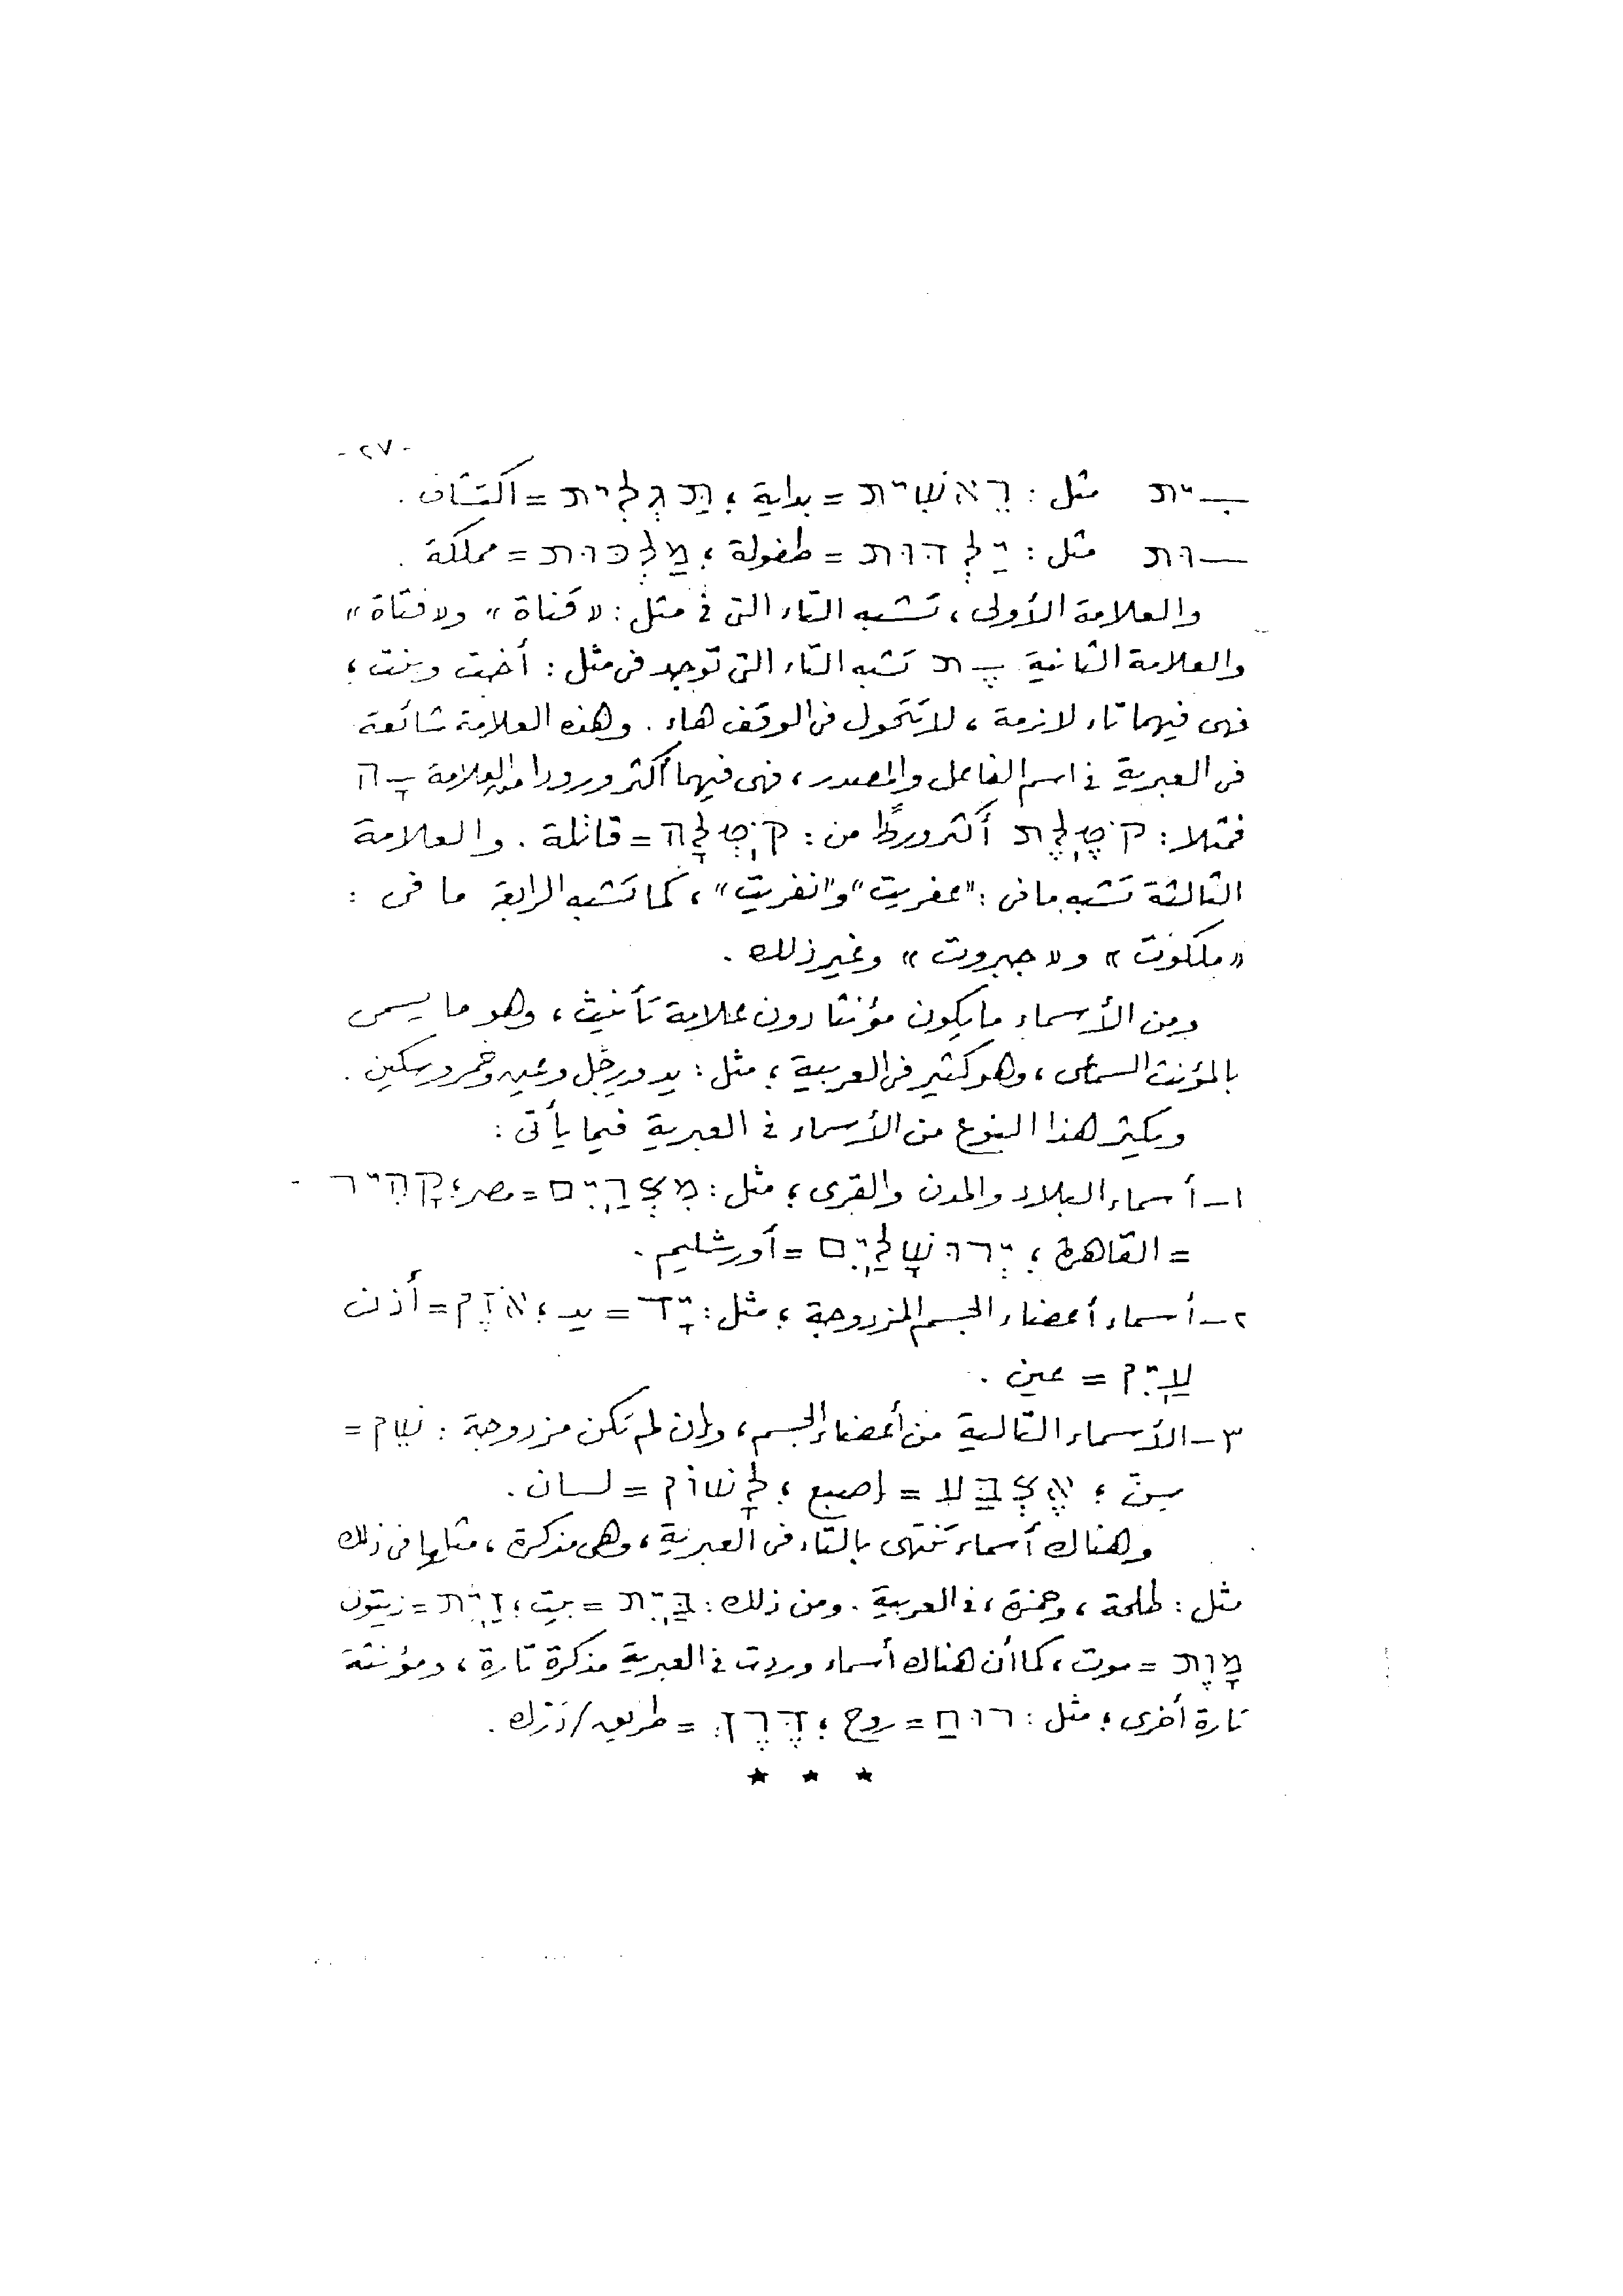 - ٢٧ -
ـִית مثل : רֵאשִׁית = بداية ؛ תַּגְלִית = اكتشاف .
ـוּת مثل : יַלְדוּת = طفولة ؛ מַלְכוּת = مملكة .
والعلامة الأولى ، تشبه التاء التى فى مثل : « قناة » و« فتاة »
والعلامة الثانية ـֶת تشبه التاء التى توجد فى مثل : أخت وبنت ؛
فهى فيهما تاء لازمة ، لا تتحول فى الوقف هاء . وهذه العلامة شائعة
فى العبرية فى اسم الفاعل والمصدر ، فهى فيهما أكثر ورودا من العلامة ـָה
فمثلا : קֹטֶלֶת أكثر ورودًا من : קֹטְלָה = قاتلة . والعلامة
الثالثة تشبه ما فى : "عفريت" و"نفريت" ، كما تشبه الرابعة ما فى :
« ملكوت » و« جبروت » وغير ذلك .
ومن الأسماء ما يكون مؤنثا دون علامة تأنيث ، وهو ما يسمى
بالمؤنث السماعى ، وهو كثير فى العربية ؛ مثل : يد ورِجْل وعين وخمر وسكين .
ويكثر هذا النوع من الأسماء فى العبرية فيما يأتى :
١ ـ أسماء البلاد والمدن والقرى ؛ مثل : מִצְרַיִם = مصر ؛ קָהִיר
= القاهرة ؛ יְרוּשָׁלַיִם = أورشليم .
٢ ـ أسماء أعضاء الجسم المزدوجة ؛ مثل : יָד = يد ؛ אֹזֶן = أذن
עַיִן = عين .
٣ ـ الأسماء التالية من أعضاء الجسم ، وإن لم تكن مزدوجة : שֵׁן =
سِنّ ؛ אֶצְבַּע = إصبع ؛ לָשׁוֹן = لسان .
وهناك أسماء تنتهى بالتاء فى العبرية ، وهى مذكرة ، مثلها فى ذلك
مثل : طلحة ، وحمزة ، فى العربية . ومن ذلك : בַּיִת = بيت ؛ זַיִת = زيتون
מָוֶת = موت ، كما أن هناك أسماء وردت فى العبرية مذكرة تارة ، ومؤنثة
تارة أخرى ؛ مثل : רוּחַ = روح ؛ דֶּרֶךְ = طريق / دَرَك .
★ ★ ★